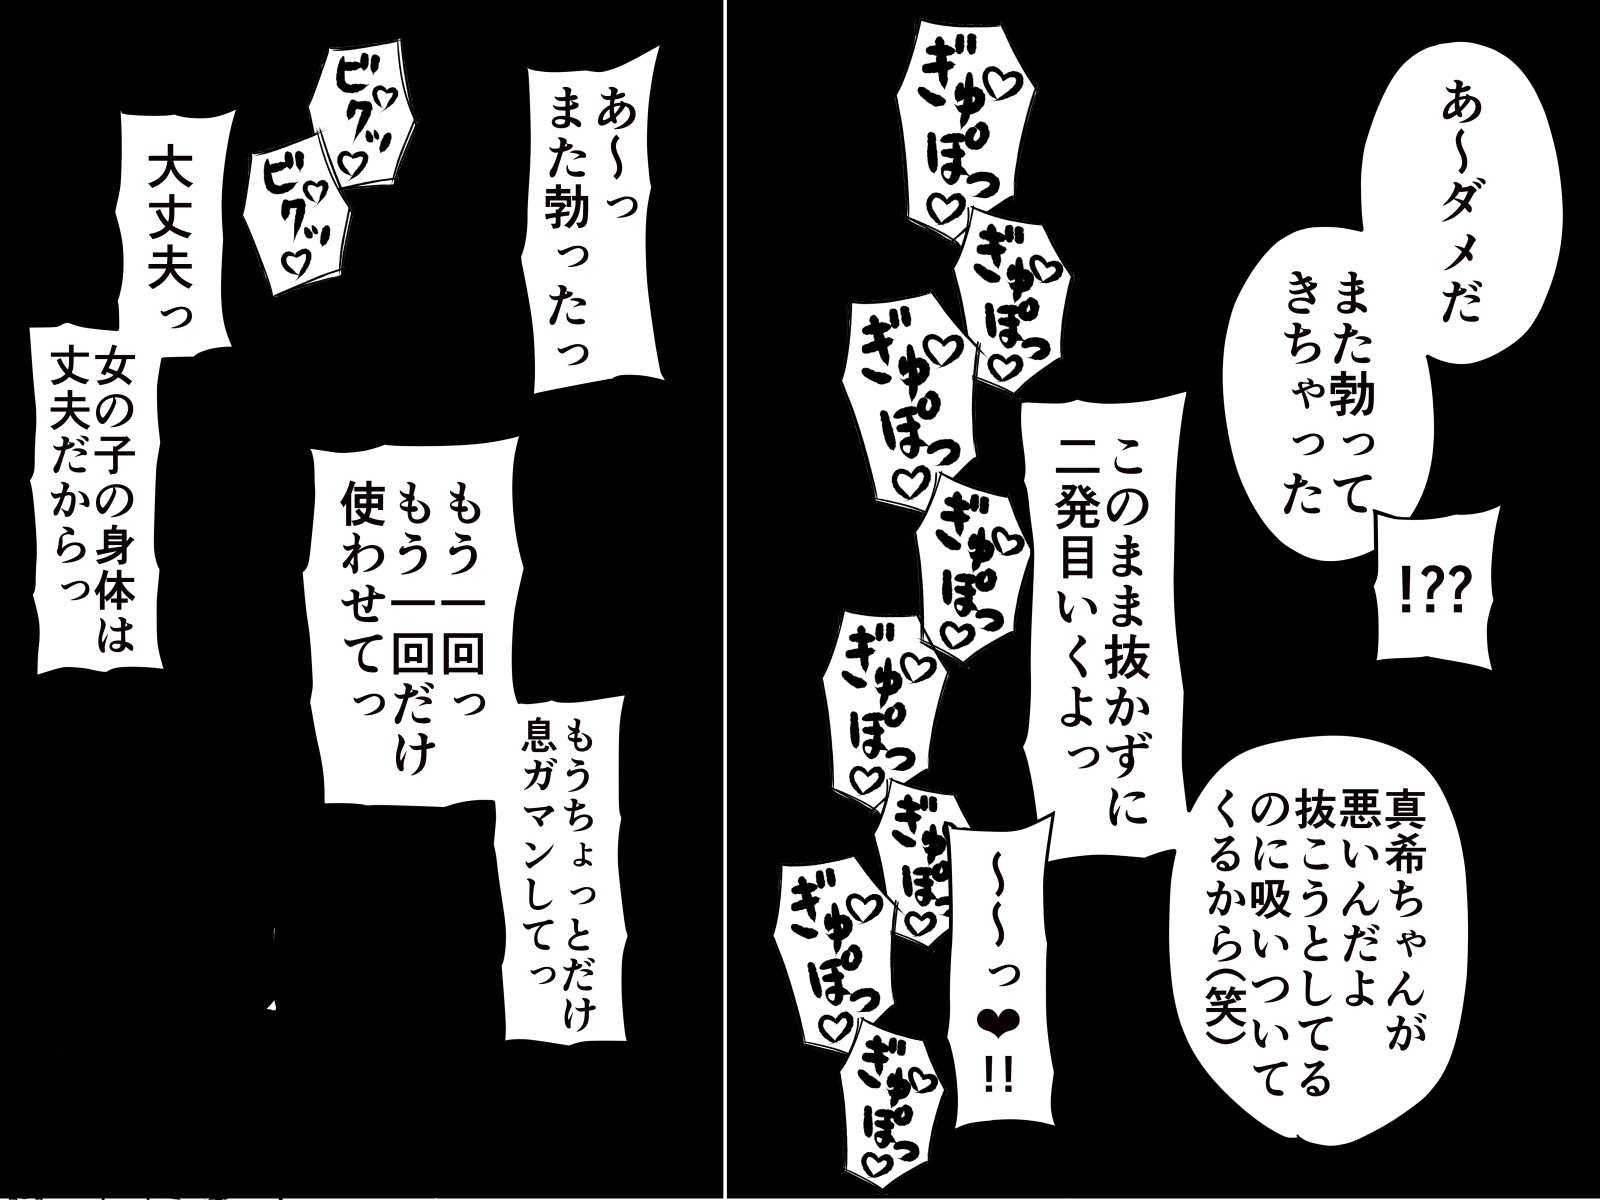 あ〜ダメだ
また勃って
きちゃった
!??
このまま抜かずに
二発目いくよっ
真希ちゃんが
悪いんだよ
抜こうとしてる
のに吸いついて
くるから(笑)
〜〜っ❤!!
ぎゅぽっ♡
ぎゅぽっ♡
ぎゅぽっ♡
ぎゅぽっ♡
ぎゅぽっ♡
ぎゅぽっ♡
ぎゅぽっ♡
ぎゅぽっ♡
あ〜っ
また勃ったっ
ビクッ♡
ビクッ♡
もう一回っ
もう一回だけ
使わせてっ
もうちょっとだけ
息ガマンしてっ
大丈夫っ
女の子の身体は
丈夫だからっ